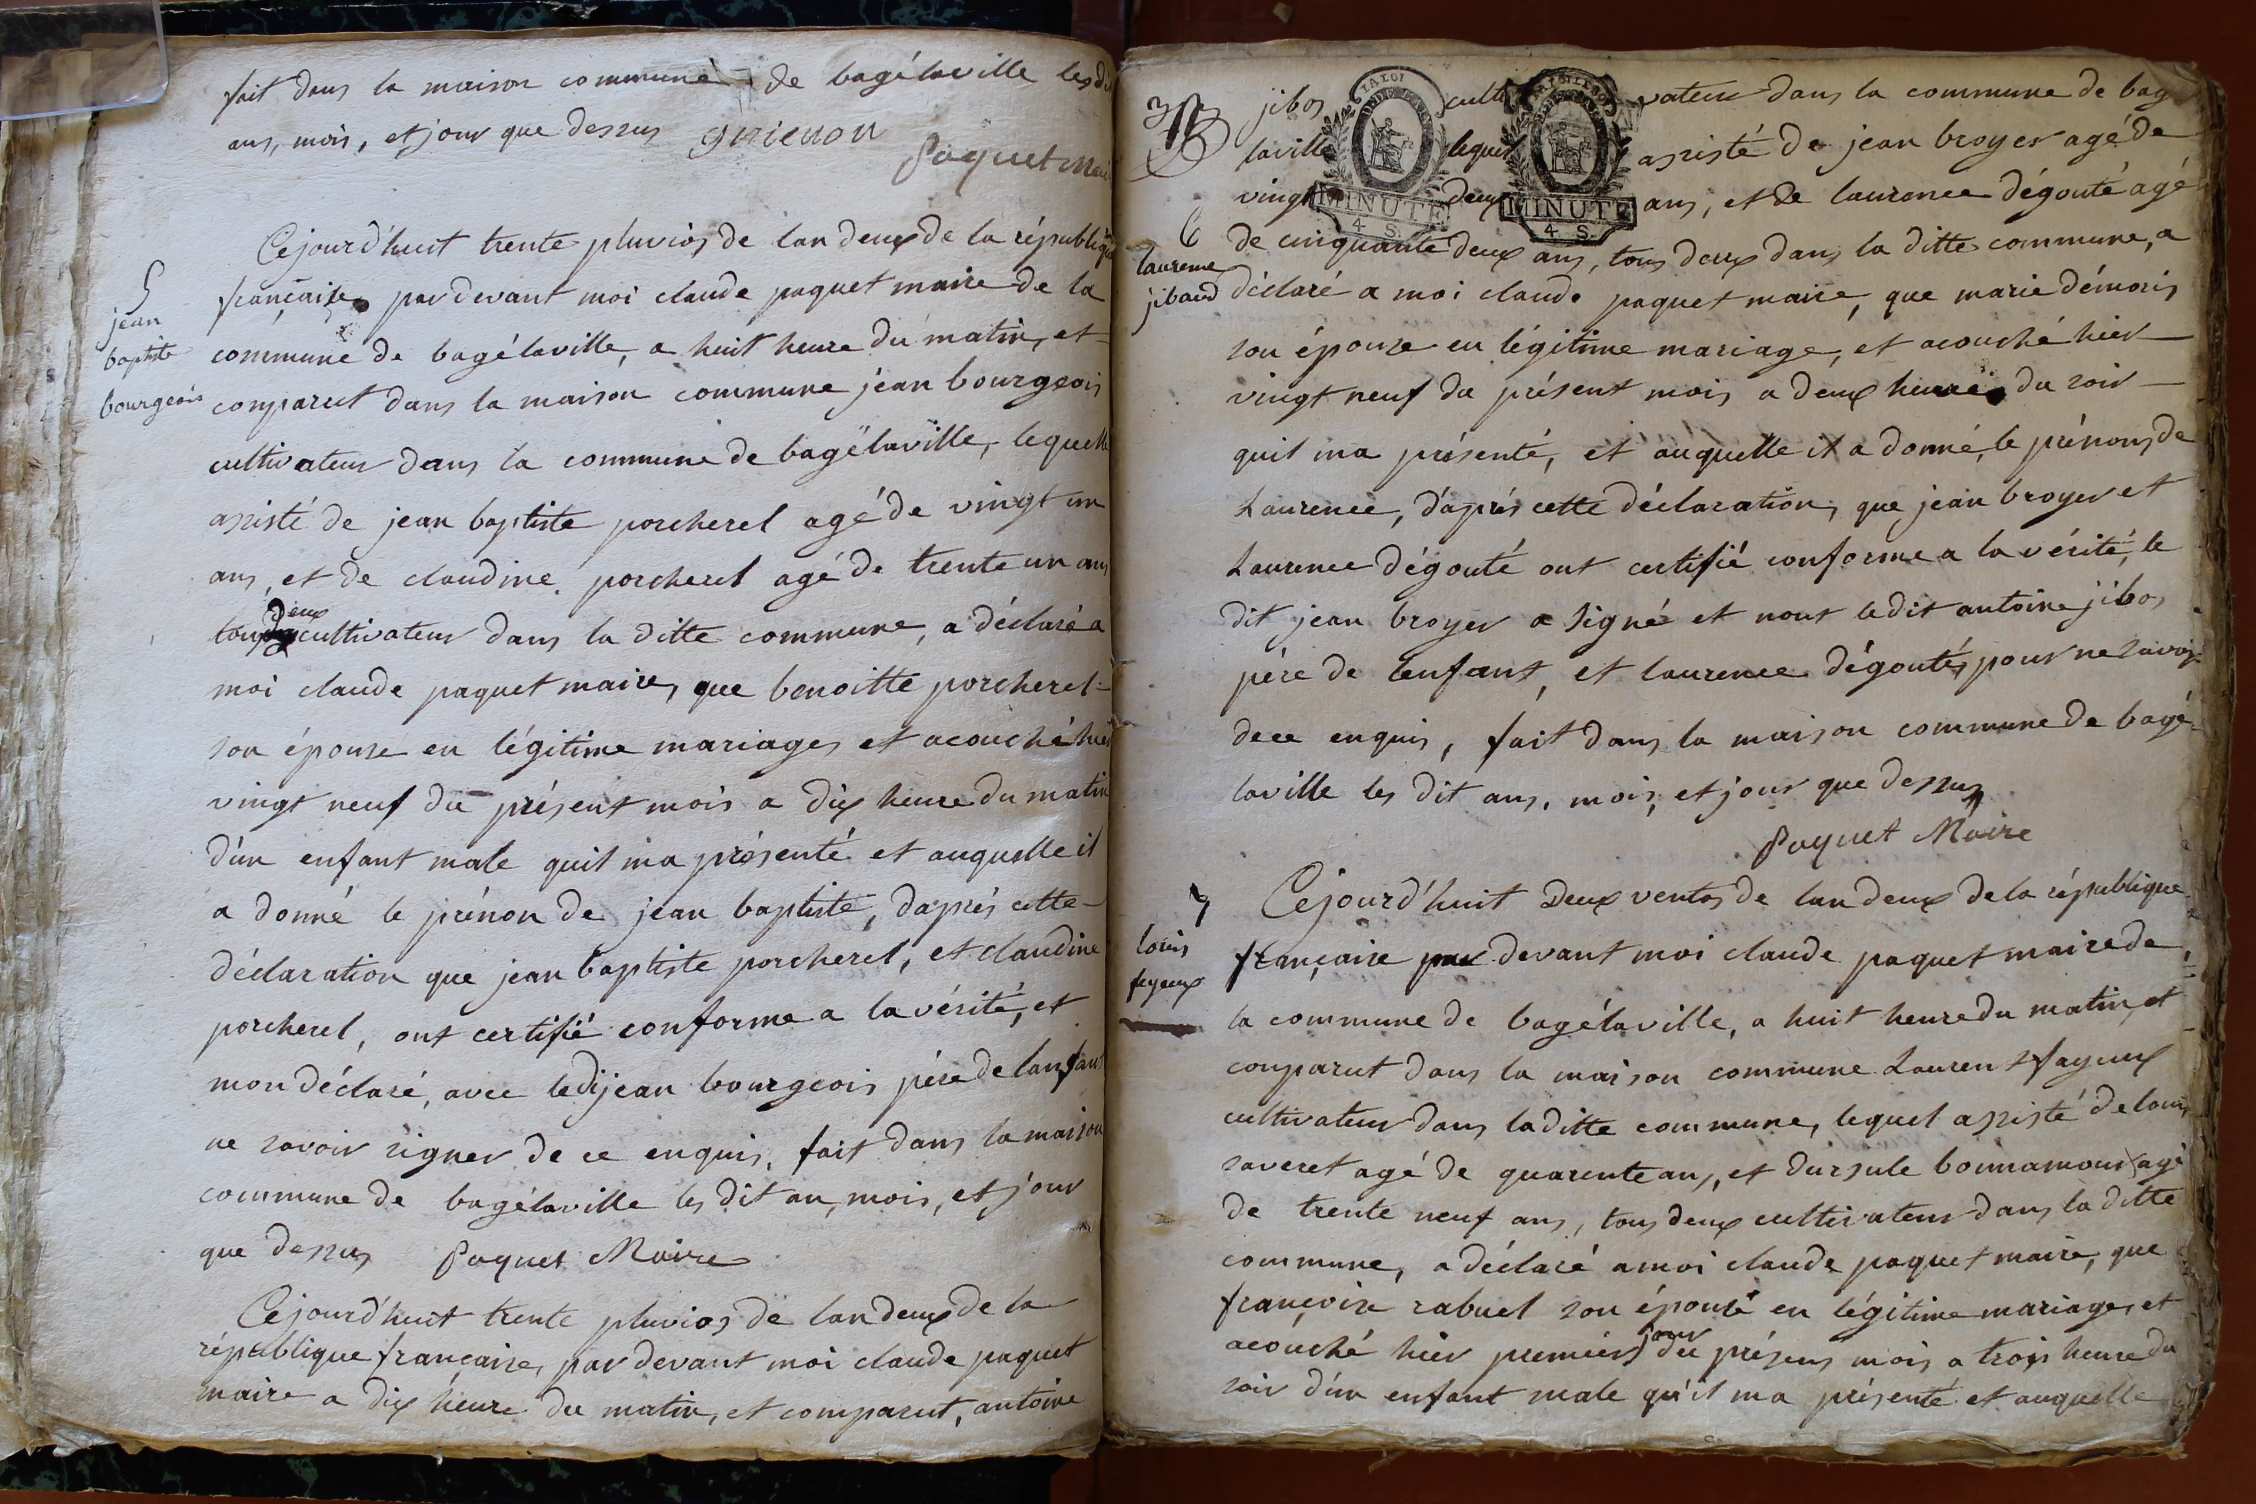 fait dans la maison commune de bagélaville les dit
ans, mois, et jour que dessus guienon
paquet maire
5
jean
baptiste
bourgeois
Cejourd'huit trente pluvios de lan deux de la républiq
française pardevant moi claude paquet maire de la
commune de bagélaville, a huit heure du matin, et
conparut dans la maison commune jean bourgeois
cultivateur dans la commune de bagélaville, lequelle
assisté de jean baptiste porcherel agé de vingt un
ans, et de claudine porcherel agé de trente un ans
tous deux cultivateur dans la ditte commune, a déclaré a
moi claude paquet maire, que benoitte porcherel
son épouse en légitime mariages et acouché hier
vingt neuf du présent mois a dix heure du matin
d'un enfant male quil ma présenté et auquelle il
a donné le prénon de jean baptiste, daprés cette
déclaration que jean baptiste porcherel, et claudine
porcherel, ont certifié conforme a la vérité, et
mon déclaré, avec ledijean bourgeois pére de lanfant
ne savoir signer de ce enquis, fait dans la maison
commune de bagélaville les dit an, mois, et jour
que dessus paquet Maire
Cejourd'huit trente pluvios de lan deux de la
république française, par devant moi claude paquet
maire a dix heure du matin, et comparut, antoine
3
LA LOI
MINUTE
4 S.
MINUTE
4 S.
jibos cultivateur dans la commune de bagé
laville lequel assisté de jean broyer agé de
vingt deux ans, et de laurence dégouté agé
6
laurence
jibaud
de cinquante deux ans, tous deux dans la ditte commune, a
déclaré a moi claude paquet maire, que marie démoris
son épouse en légitime mariage, et acouché hier
vingt neuf du présent mois a deux heure du soir
quil ma présenté, et auquelle il a donné le prénons de
Laurence, d'aprés cette déclaration, que jean broyer et
Laurence dégouté ont certifié conforme a la vérité, le
dit jean broyer a signé et nont le dit antoine jibos
pére de lenfant, et laurence dégouté, pour ne savoir
dece enquis, fait dans la maison commune de bagé
laville les dit ans, mois, et jour que dessus
paquet Maire
7
louis
feyeux
Cejourd'huit Deux ventos de lan deux de la république
française par devant moi claude paquet maire de
la commune de bagélaville, a huit heure du matin, et
conparut dans la maison commune Laurent fayeux
cultivateur dans laditte commune, lequel assisté de louis
saveret agé de quarente ans, et dursule bonnamour agé
de trente neuf ans, tous deux cultivateur dans la ditte
commune, a déclaré a moi claude paquet maire, que
françoise rabuel son épouse en légitime mariages et
acouché hier premiers jour du présens mois a trois heure du
soir d'un enfant male qu'il ma présenté et auquelle